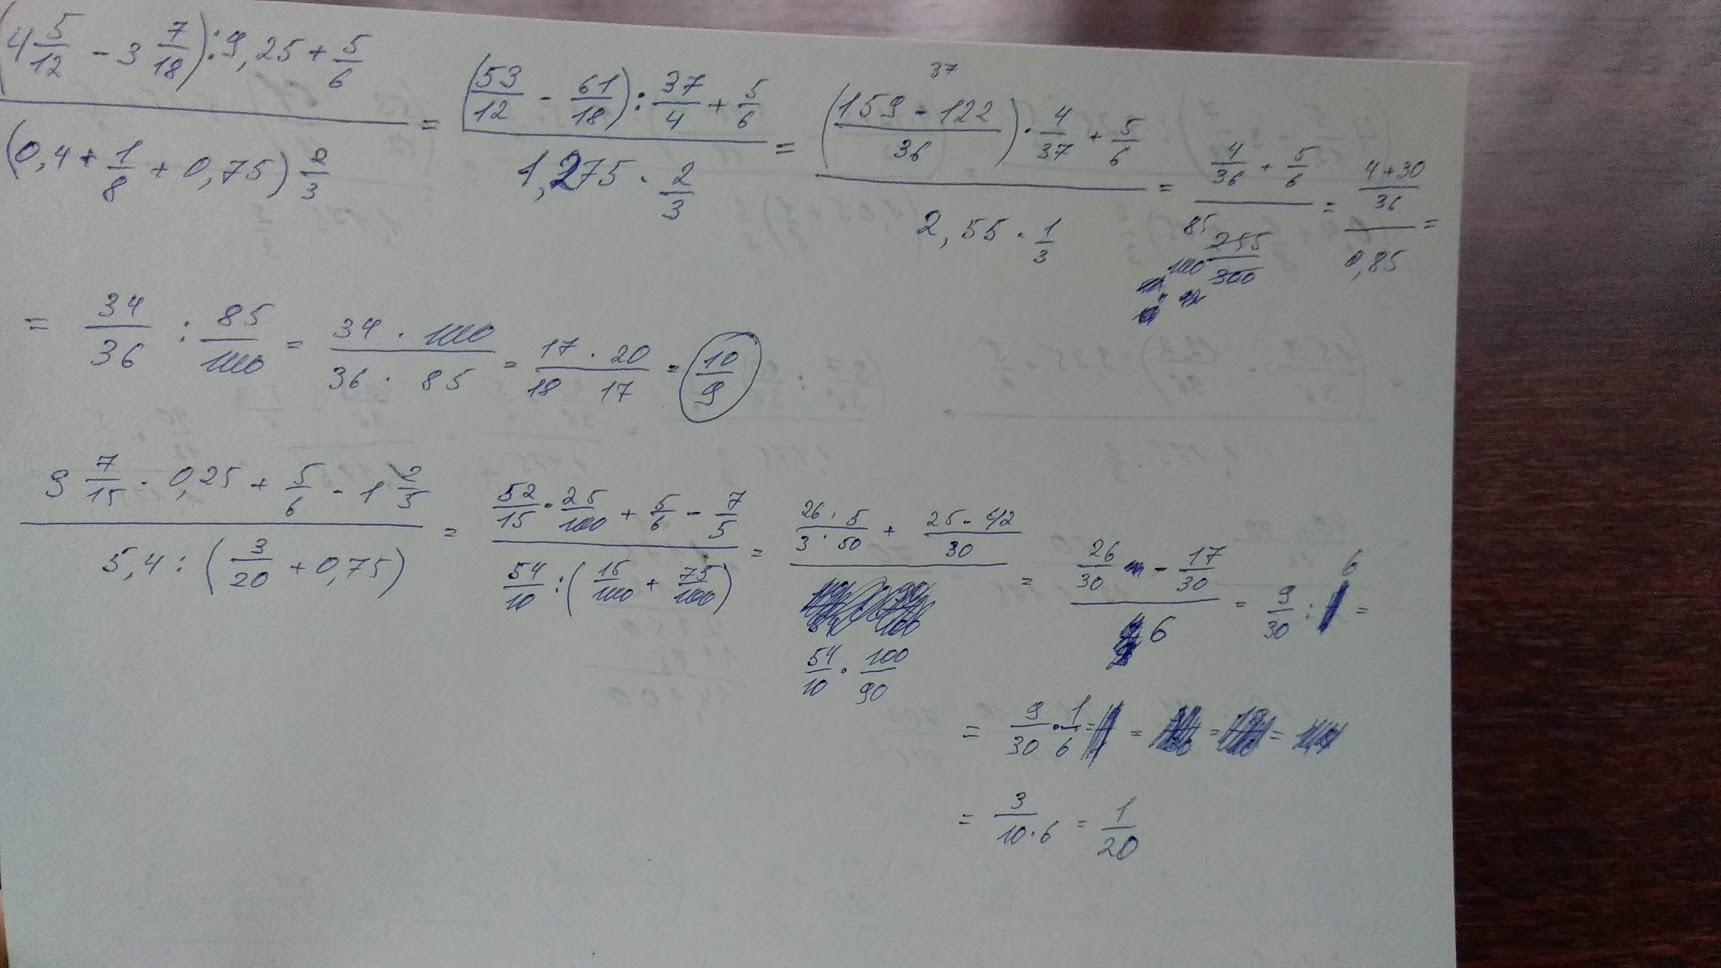 (4 5/12 - 3 7/18) : 9,25 + 5/6 / (0,4 + 1/8 + 0,75) 2/3 = (53/12 - 61/18) : 37/4 + 5/6 / 1,275 · 2/3 = 37 (159 - 122 / 36) · 4/37 + 5/6 / 2,55 · 1/3 = 4/36 + 5/6 / 85 255 / 100 300 = 4+30/36 / 0,85 =
= 34/36 : 85/100 = 34 · 100 / 36 · 85 = 17 · 20 / 18 17 = 10/9
9 7/15 · 0,25 + 5/6 - 1 2/5 / 5,4 : (3/20 + 0,75) = 52/15 · 25/100 + 5/6 - 7/5 / 54/10 : (15/100 + 75/100) = 26 · 5 / 3 · 50 + 25 - 42 / 30 / 54/10 · 100/90 = 26/30 - 17/30 / 6 = 9/30 : 6 =
= 9/30 · 1/6 = = = =
= 3 / 10 · 6 = 1/20